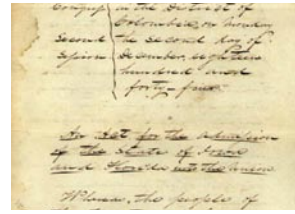 Congress in the District of
Columbia, on Monday
Second the second day of
Session December, eighteen
hundred and
forty-four
An Act for the admission
of the State of Iowa
and Florida into the union
Whereas, the people of